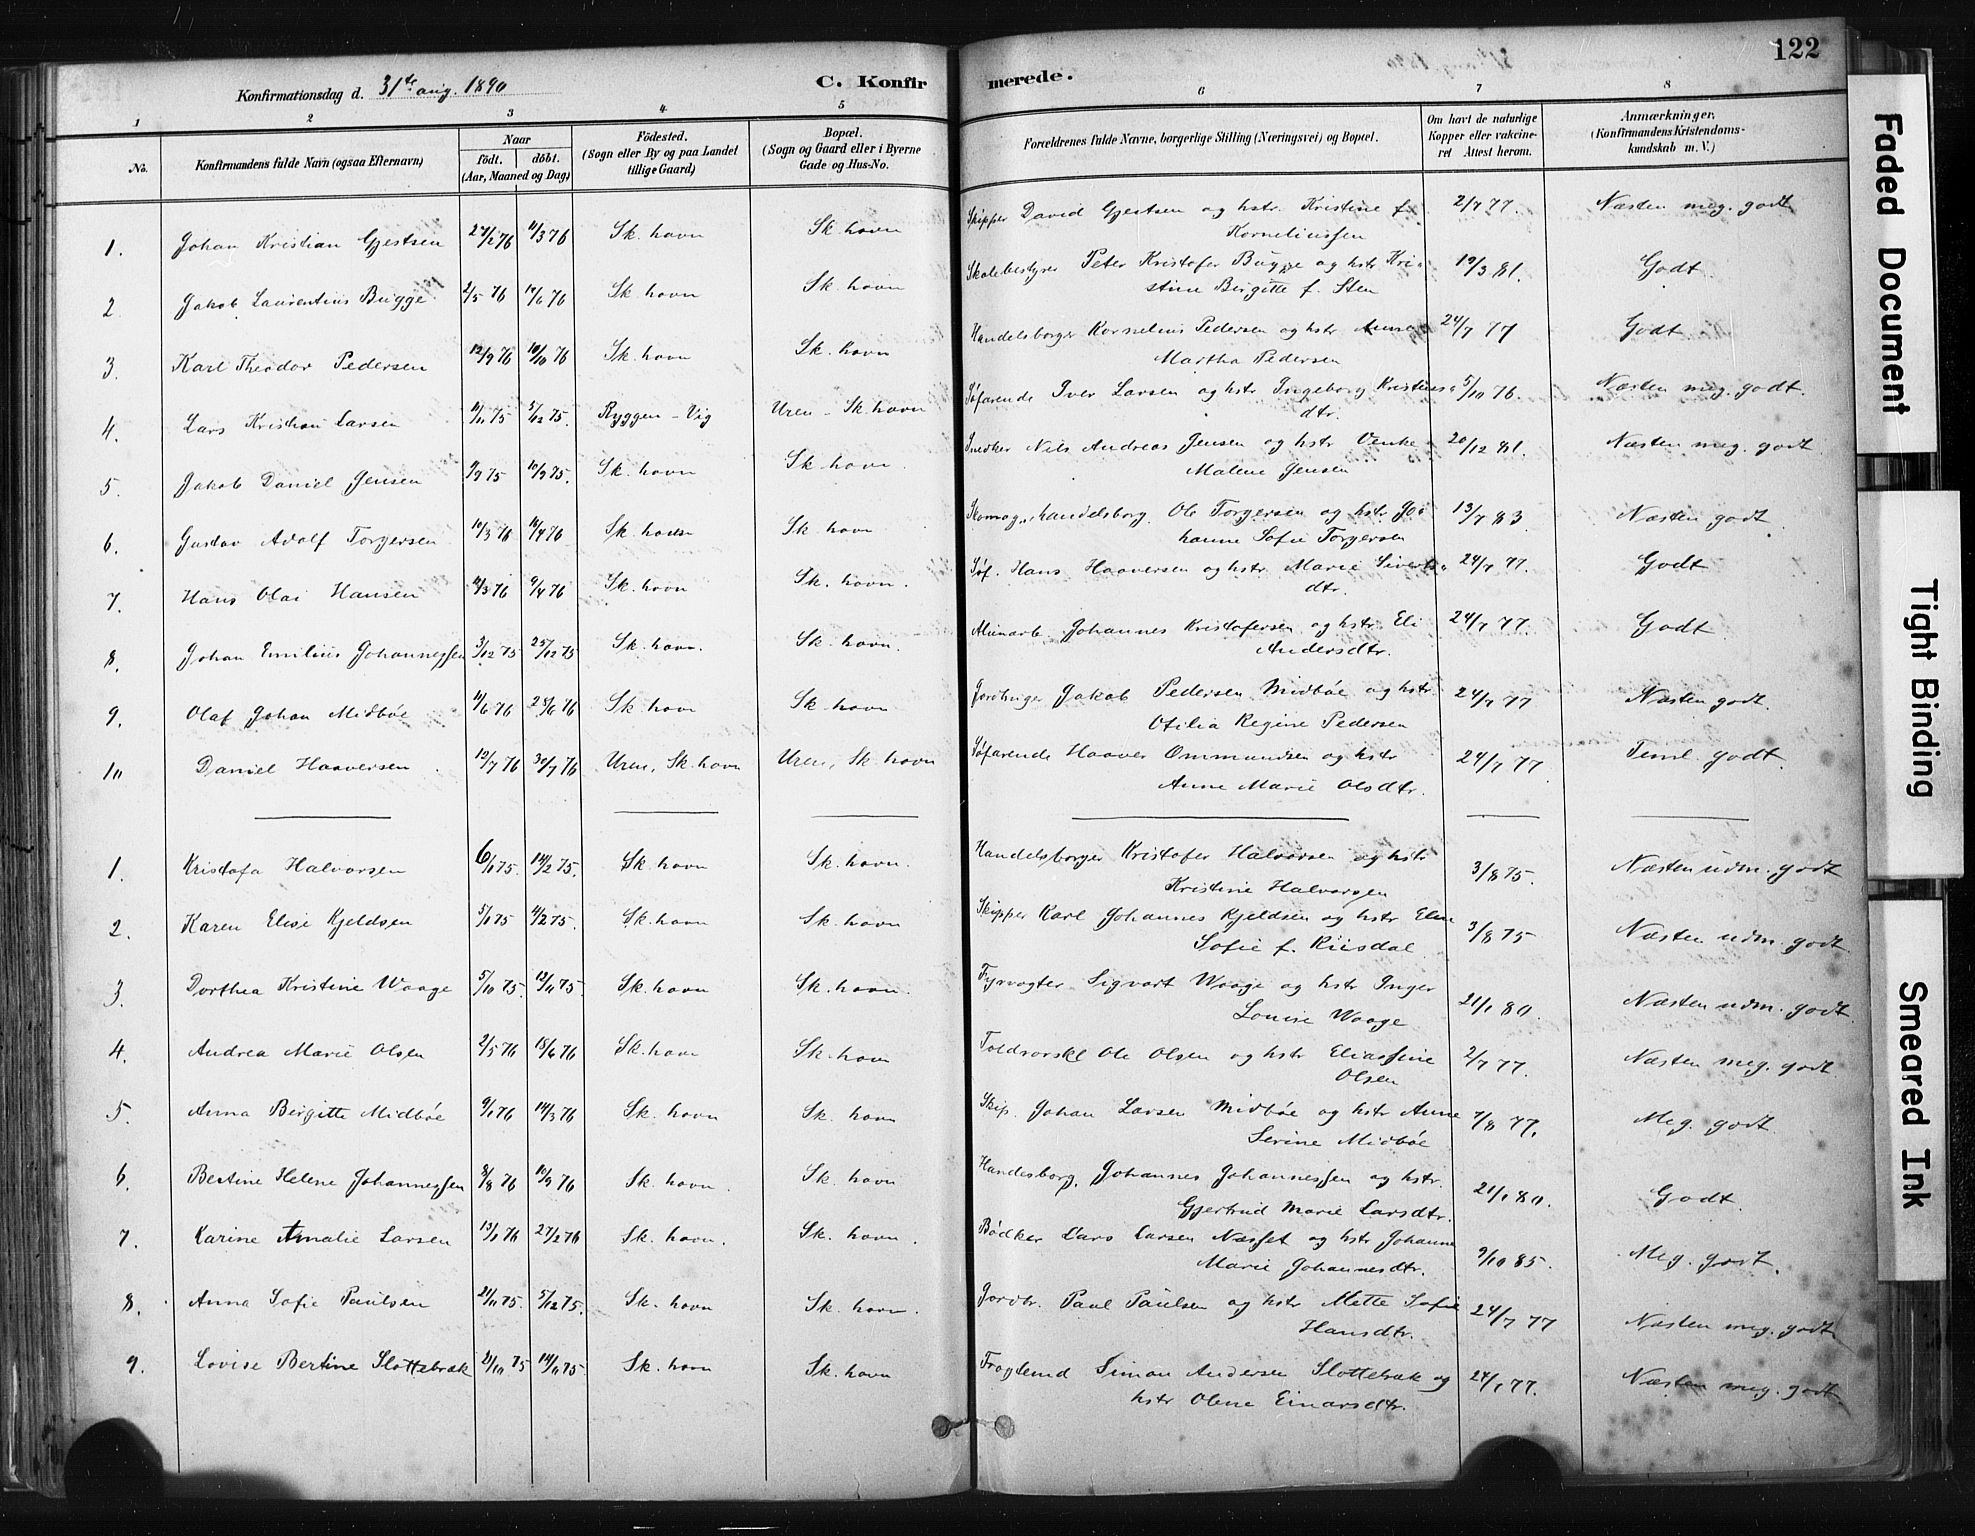 122
Konfirmationsdag d. 31te aug. 1890
C. Konfirmerede.
1 2 3 4 5 6 7 8
No.
Konfirmandens fulde Navn (ogsaa Efternavn)
Naar
födt. döbt.
(Aar, Maaned og Dag)
Födested.
(Sogn eller By og paa Landet
tillige Gaard)
Bopæl.
(Sogn og Gaard eller i Byerne
Gade og Hus-No.
Forældrenes fulde Navne, borgerlige Stilling (Næringsvei) og Bopæl.
Om havt de naturlige
Kopper eller vakcine-
ret Attest herom.
Anmærkninger.
(Konfirmandens Kristendoms-
kundskab m. V.)
1. Johan Kristian Gjestsen 27/2 76 Sk. havn Sk. havn Skipper David Gjestsen og hstr. Kristine f. 2/7 77. Næsten meg. godt
Kornelius͡sen
2. Jakob Laurentius Bugge 2/5 76 Sk. havn Sk. havn Skolebestyrer Peter Kristofer Bugge og hstr Kri- 19/3 81. Godt
stine Birgitte f. Sten
3. Karl Theodor Pedersen 12/9 76 Sk. havn Sk. havn Handelsborger Kornelius Pedersen og hstr Anna 24/7 77 Godt
Martha Pedersen
4. Lars Kristian Larsen Ryggen - Vig Uren - Sk. havn Søfarende Iver Larsen og hstr Ingeborg Kristines 5/10 76. Næsten meg. godt.
dtr.
5. Jakob Daniel Jensen Sk. havn Sk. havn. Snedker Nils Andreas Jensen og hstr Venke 20/12 81. Næsten meg. godt
Malene Jensen
6. Gustav Adolf Torgersen Sk. havn Sk. havn Skomag. Handelsborg. Ole Torgersen og hstr. Jo- 13/7 83 Næsten godt
hanne Sofie Torgersen
7. Hans Olai Hansen Sk. havn Sk. havn. Søf. Hans Haaversen og hstr Marie Siverts- 24/7 77. Godt
dtr.
8. Johan Emilius Johannessen 3/12 75 25/12 75 Sk. havn. Sk. havn. Johannes Kristofersen og hstr Eli 24/7 77. Godt
Andersdtr.
9. Olaf Johan Midbøe Sk. havn Sk. havn Jordbruger Jakob Pedersen Midbøe og hstr 24/7 77 Næsten godt.
Otilia Regine Pedersen
10 Daniel Haaversen 12/7 76 30/7 76 Uren, Sk. havn Uren, Sk. havn Søfarende Haaver Ommundsen og hstr 24/7 77. Teml. godt
Anne Marie Olsdtr.
1. Kristofa Halvorsen 6/1 75. 14/2 75. Sk. havn Sk. havn. Handelsborger Kristofer Halvorsen og hstr 3/8 75. Næsten udm. godt
Kristine Halvorsen
2. Karen Elise Kjeldsen 5/1 75 Sk. havn Sk. havn Skipper Karl Johannes Kjeldsen og hstr Elen 3/8 75 Næsten udm. godt
Sofie f. Riisdal
3. Dorthea Kristine Waage 5/10 75. Sk. havn Sk. havn. Fyrvogter Sigvart Waage og hstr Inger 21/1 80. Næsten udm. godt
Louise Waage
4. Andrea Marie Olsen 2/5 76 18/6 76 Sk. havn Sk. havn Ole Olsen og hstr Eliassine 2/7 77. Næsten meg. godt
Olsen
5. Anna Birgitte Midbøe 9/1 76 14/3 76 Sk. havn Sk. havn Skip. Johan Larsen Midbøe og hstr Anne 7/8 77. Meg. godt
Serine Midbøe
6. Bertine Helene Johannessen 8/8 76 10/9 76 Sk. havn. Sk. havn Handesborg. Johannes Johannessen og hstr. 21/1 80. Godt.
Gjertrud Marie Larsdtr.
7. Karine Amalie Larsen 13/1 76 27/2 76 Sk. havn. Sk. havn. Bødker Lars Larsen Næsset og hstr Johanne 9/10 85. Meg. godt.
Marie Johannesdtr.
8. Anna Sofie Paulsen 21/11 75. 5/12 75. Sk. havn Sk. havn. Jordbr. Paul Paulsen og hstr Mette Sofie 24/7 77 Næsten meg. godt
Hansdtr.
9. Lovise Bertine Slottebræk 21/10 75 14/11 75 Sk. havn Sk. havn Simon Andersen Slottebræk og 24/7 77. Næsten meg. godt
hstr Olene Einarsdtr.
Faded Document
Tight Binding
Smeared Ink